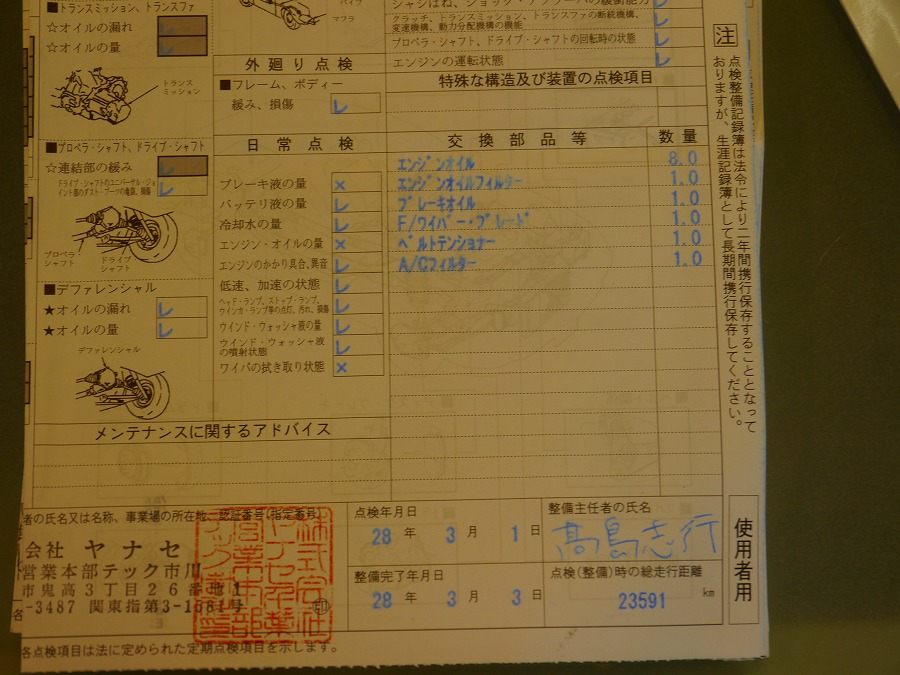 ■トランスミッション、トランスファ
☆オイルの漏れ レ
☆オイルの量 レ
トランス
ミッション
■プロペラ・シャフト、ドライブ・シャフト
☆連結部の緩み レ
ドライブ・シャフトのユニバーサル・ジョ
イント部のダスト・ブーツの亀裂、損傷 レ
プロペラ・
シャフト
ドライブ
シャフト
■デファレンシャル
★オイルの漏れ レ
★オイルの量 レ
デファレンシャル
マフラ
外廻り点検
■フレーム、ボディー
緩み、損傷 レ
日常点検
ブレーキ液の量 ×
バッテリ液の量 レ
冷却水の量 レ
エンジン・オイルの量 ×
エンジンのかかり具合、異音 レ
低速、加速の状態 レ
ヘッド・ランプ、ストップ・ランプ、
ウインカ・ランプ等の点灯、汚れ、損傷 レ
ウインド・ウォッシャ液の量 レ
ウインド・ウォッシャ液
の噴射状態 レ
ワイパの拭き取り状態 ×
クラッチ、トランスミッション、トランスファの断続機構、
変速機構、動力分配機構の機能 レ
プロペラ・シャフト、ドライブ・シャフトの回転時の状態 レ
エンジンの運転状態 レ
特殊な構造及び装置の点検項目
交換部品等 数量
エンジンオイル 8.0
エンジンオイルフィルター 1.0
ブレーキオイル 1.0
F/ワイパー・ブレード 1.0
ベルトテンショナー 1.0
A/Cフィルター 1.0
注
点検整備記録簿は法令により二年間携行保存することとなって
おりますが、生涯記録簿として長期間携行保存してください。
メンテナンスに関するアドバイス
者の氏名又は名称、事業場の所在地、認証番号(指定番号)
会社 ヤナセ
営業本部テック市川
市鬼高3丁目26番地1
-3487 関東指第3-1581号
印
点検年月日
28年 3月 1日
整備完了年月日
28年 3月 3日
整備主任者の氏名
髙島志行
点検(整備)時の総走行距離
23591 km
使用者用
各点検項目は法に定められた定期点検項目を示します。